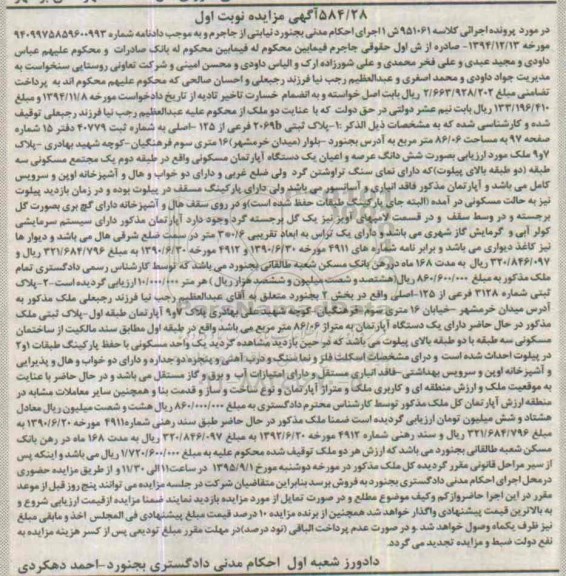 ۵۸۴/۲۸آگهی مزایده نوبت اول
در مورد پرونده اجرائی کلاسه ۹۵۱۰۶۱ ش ۱ اجرای احکام مدنی بجنورد نیابتی از جاجرم و به موجب دادنامه شماره ۹۴۰۹۹۷۵۸۵۹۶۰۰۹۹۳
مورخه ۱۳۹۴/۱۲/۱۳- صادره از ش اول حقوقی جاجرم فیمابین محکوم له فیمابین محکوم له بانک صادرات و محکوم علیهم عباس
داودی و مجید عبدی و علی فخر محمدی و علی شورزاده ارک و الیاس داودی و محسن امینی و شرکت تعاونی روستایی سنخواست به
مدیریت جواد داودی و محمد اصغری و عبدالعظیم رجب نیا فرزند رجبعلی و احسان صالحی که محکوم علیهم محکوم اند به پرداخت
تضامنی مبلغ ۲/۶۶۳/۹۲۸/۲۰۲ ریال بابت اصل خواسته و به انضمام خسارت تاخیر تادیه از تاریخ دادخواست مورخه ۱۳۹۴/۱۱/۸ و مبلغ
۱۳۳/۱۹۶/۴۱۰ ریال بابت نیم عشر دولتی در حق دولت که با عنایت دو ملک از محکوم علیه عبدالعظیم رجب نیا فرزند رجبعلی توقیف
شده و کارشناسی شده که به مشخصات ذیل الذکر :۱-پلاک ثبتی ۲۰۶۹b فرعی از ۱۲۵ -اصلی به شماره ثبت ۴۰۷۷۹ دفتر ۱۵ شماره
صفحه ۹۷ به مساحت ۸۶/۰۶ متر مربع به آدرس بجنورد -بلوار (میدان خرمشهر)۱۶ متری سوم فرهنگیان -کوچه شهید بهادری -پلاک
۷و۹ ملک مورد ارزیابی بصورت شش دانگ عرصه و اعیان یک دستگاه آپارتمان مسکونی واقع در طبقه دوم یک مجتمع مسکونی سه
طبقه (دو طبقه بالای پیلوت)که دارای نمای سنگ تراوشتن گرد ولی ضلع غربی و دارای دو خواب و هال و آشپزخانه اوپن و سرویس
کامل می باشد و آپارتمان مذکور فاقد انباری و آسانسور می باشد ولی دارای پارکینگ مسقف در پیلوت بوده و در زمان بازدید پیلوت
نیز به حالت مسکونی در آمده (البته جای پارکینگ طبقات حفظ شده است)و در روی سقف هال و آشپزخانه دارای گچ بری بصورت گل
برجسته و در وسط سقف و در قسمت لامپهای آویز نیز یک گل برجسته گرد وجود دارد آپارتمان مذکور دارای سیستم سرمایشی
کولر آبی و گرمایش گاز شهری می باشد و دارای یک تراس به ابعاد تقریبی ۳۰۰/۶ متر در سمت ضلع شرقی هال می باشد و دیوار ها
نیز کاغذ دیواری می باشد و برابر نامه شماره های ۴۹۱۱ مورخه ۱۳۹۰/۶/۳۰ و ۴۹۱۲ مورخه ۱۳۹۰/۶/۳۰ به مبلغ ۳۲۱/۶۸۴/۷۹۶ ریال و
۳۲۰/۸۴۶/۰۹۷ ریال به مدت ۱۶۸ ماه در رهن بانک مسکن شعبه طالقانی بجنورد می باشد که توسط کارشناس رسمی دادگستری تمام
ملک مذکور به مبلغ ۸۶۰/۶۰۰/۰۰۰ ریال(هشتصد و شصت میلیون و ششصد هزار ریال ) هر متر ۱۰/۰۰۰/۰۰۰ ارزیابی گردیده است-۲-پلاک
ثبتی شماره ۳۱۲۸ فرعی از ۱۲۵-اصلی واقع در بخش ۲ بجنورد متعلق به آقای عبدالعظیم رجب نیا فرزند رجبعلی ملک مذکور به
آدرس میدان خرمشهر -خیابان ۱۶ متری سوم فرهنگیان- کوچه شهید علی بهادری پلاک ۷و۹ آپارتمان طبقه اول-پلاک ثبتی ملک
مذکور در حال حاضر دارای یک دستگاه آپارتمان به متراژ ۸۶/۰۶ متر مربع می باشد واقع در طبقه اول مطابق سند مالکیت از ساختمان
مسکونی سه طبقه با دو طبقه بالای پیلوت می باشد که در حین بازدید مشاهده گردید یک واحد مسکونی با حفظ پارکینگ طبقات ۱و۲
در پیلوت احداث شده است و درای مشخصات اسکلت فلز و نما سنگ و درب آهنی و پنجره دو جداره و دارای دو خواب و هال و پذیرایی
و آشپزخانه اوپن و سرویس بهداشتی-فاقد انباری مستقل و دارای امتیازات آب و برق و گاز مستقل می باشد و در حال حاضر با عنایت
به موقعیت ملک و ارزش منطقه ای و کاربری ملک و متراژ آپارتمان و نوع ساخت و ساز و قدمت بنا و همچنین سایر معاملات مشابه در
منطقه ارزش آپارتمان کل ملک مذکور توسط کارشناس محترم دادگستری به مبلغ ۸۶۰/۰۰۰/۰۰۰ ریال هشت و شصت میلیون ریال معادل
هشتاد و شش میلیون تومان ارزیابی گردیده است ضمنا ملک مذکور در حال حاضر طبق سند رهنی شماره۴۹۱۱ مورخه ۱۳۹۰/۶/۲۰ به
مبلغ ۳۲۱/۶۸۴/۷۹۶ ریال و سند رهنی شماره ۴۹۱۲ مورخه ۱۳۹۲/۶/۲۰ به مبلغ ۳۲۰/۸۴۶/۰۹۷ ریال به مدت ۱۶۸ ماه در رهن بانک
مسکن شعبه طالقانی بجنورد می باشد که ارزش هر دو ملک توقیف شده محکوم علیه به مبلغ ۱/۷۲۰/۶۰۰/۰۰۰ ریال می باشد و اینکه پس
از سیر مراحل قانونی مقرر گردیده کل ملک مذکور در مورخه دوشنبه مورخ ۱۳۹۵/۹/۱ در ساعت۱۱الی ۱۱/۳۰ و از طریق مزایده حضوری
در محل اجرای احکام مدنی دادگستری بجنورد به فروش برسد بنابراین متقاضیان شرکت در جلسه مزایده می توانند پنج روز قبل از موعد
مقرر در این اجرا حاضر و از کم وکیف موضوع مطلع و در صورت تمایل از مورد مزایده بازدید نمایند ضمنا مزایده از قیمت ارزیابی شروع و
به بالاترین قیمت پیشنهادی واگذار خواهد شد همچنین از برنده مزایده ۱۰ درصد قیمت مبلغ پیشنهادی فی المجلس اخذ و مابقی مبلغ
نیز ظرف یکماه وصول خواهد شد .و در صورت عدم پرداخت الباقی (نود درصد)در مهلت مقرر مبلغ تودیعی پس از کسر هزینه مزایده به
نفع دولت ضبط و مزایده تجدید می گردد.
دادورز شعبه اول احکام مدنی دادگستری بجنورد-احمد دهکردی